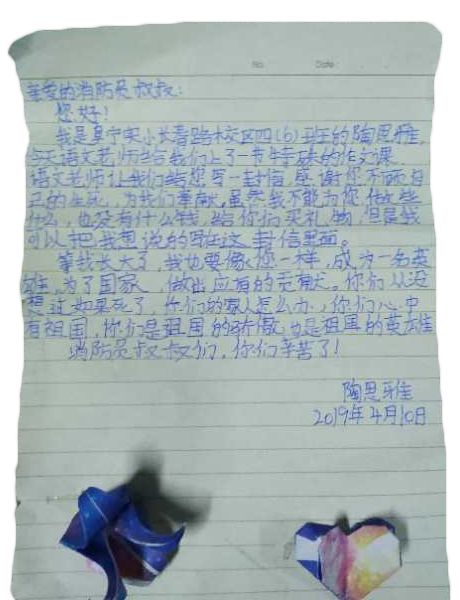 No.
Date
亲爱的消防员叔叔：
您好！
我是阜宁实小长春路校区四(6)班的陶思雅，
今天语文老师给我们上了一节特殊的作文课
语文老师让我们给您写一封信，感谢你不顾自
己的生死，为我们奉献，虽然我不能为您做些
什么，也没有什么钱给你们买礼物，但是我
可以把我想说的写在这封信里面。
等我长大了，我也要像您一样，成为一名英
雄，为了国家，做出应有的贡献。你们从没
想过如果死了，你们的家人怎么办，你们心中
有祖国，你们是祖国的骄傲也是祖国的英雄
消防员叔叔们，你们辛苦了！
陶思雅
2019年4月10日